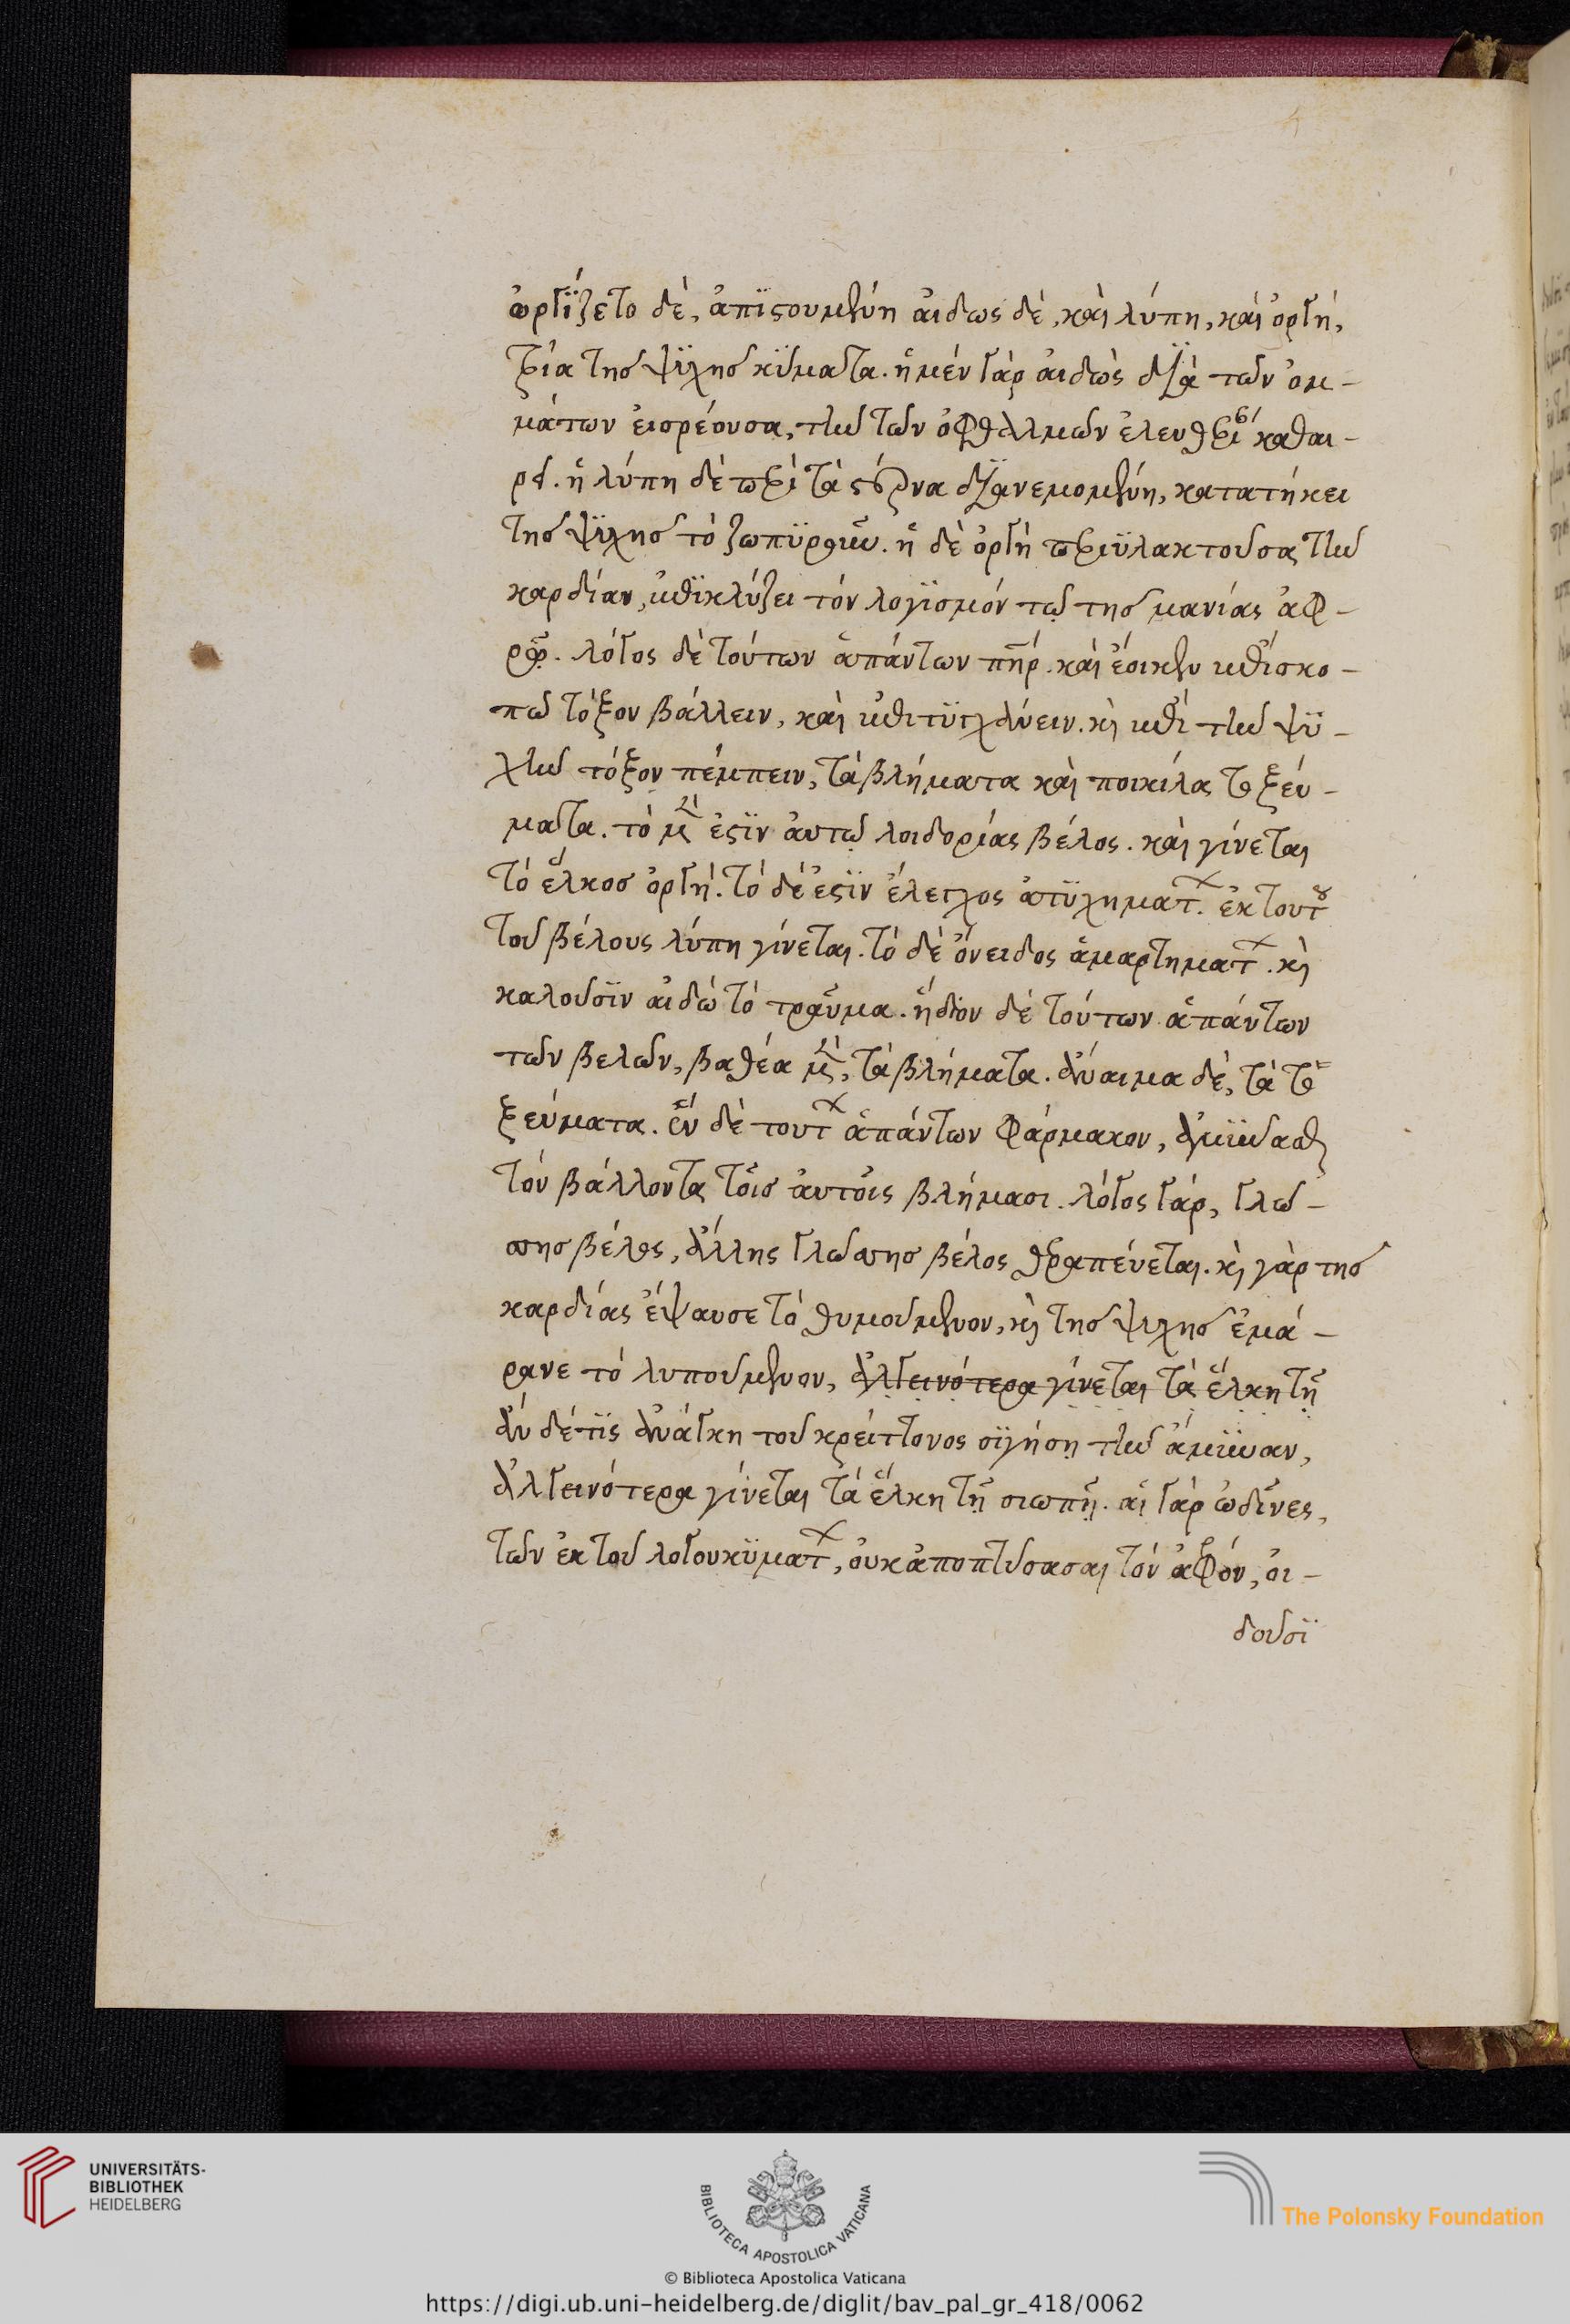 ὠργίζετο δὲ, ἀπιστουμένη ἀιδως δὲ, καὶ λύπη, καὶ ὀργή,
τρία της ψϋχης κϋματα. ἡ μέν γὰρ ἀιδὼς διὰ των ὀμ-
μάτων ἐισρέουσα, την των ὀφθαλμων ἐλευθερί καθαι-
ρεῖ. ἡ λύπη δὲ περὶ τὰ στέρνα διανεμομένη, κατατήκει
της ψϋχης τὸ ζωπϋρουν. ἡ δὲ ὀργὴ περιϋλακτουσα την
καρδίαν, ἐπϊκλύζει τόν λογϊσμόν τω της μανίας ἀφ-
ρῷ. λόγος δὲ τούτων ἁπάντων πηρ. καὶ ἔοικεν ἐπίσκο-
πω τόξον βάλλειν, καὶ ἐπιτϋγχάνειν. καὶ ἐπὶ την ψϋ-
χην τόξον πέμπειν, τὰ βλήματα καὶ ποικίλα τοξεύ-
ματα. τὸ μὲν ἐστϊν ἀυτω λοιδορίας βέλος. καὶ γίνεται
τὸ ἕλκος ὀργή. τὸ δέ ἐστϊν ἔλεγχος ἀτϋχηματ. ἐκ τουτου
του βέλους λύπη γίνεται. τὸ δὲ ὄνειδος ἁμαρτηματ. καὶ
καλουσϊν ἀιδὼ τὸ τραῦμα. ἥδιον δέ τούτων ἁπάντων
των βελων, βαθέα μὲν, τὰ βλήματα. ἄναιμα δὲ, τὰ το
ξεύματα. ἓν δὲ τουτ ἁπάντων φάρμακον, ἀμϋνασθαι
τὸν βάλλοντα τοῖς ἀυτοῖς βλήμασι. λόγος γάρ, γλώσ-
σης βέλος, ἄλλης γλώσσης βέλος θεραπεύεται. καὶ γὰρ της
καρδίας ἔψαυσε τὸ θυμουμενον, καὶ της ψιχης ἐμά-
ρανε τό λυπουμενον, ἀλγεινότερα γίνεται τὰ ἕλκη τῇ
ἂν δέ τϊς ἀνάγκη του κρείττονος σϊγήσῃ την ἄμϋναν,
ἀλγεινότερα γίνεται τὰ ἕλκη τῇ σιωπῇ. αἱ γὰρ ὠδῖνες,
των ἐκ του λογου κϋματ, ὀυκ ἀποπτυσασαι τὸν ἀφρόν, ὀι-
δουσϊ
UNIVERSITÄTS-
BIBLIOTHEK
HEIDELBERG
BIBLIOTECA APOSTOLICA VATICANA
The Polonsky Foundation
© Biblioteca Apostolica Vaticana
https://digi.ub.uni-heidelberg.de/diglit/bav_pal_gr_418/0062